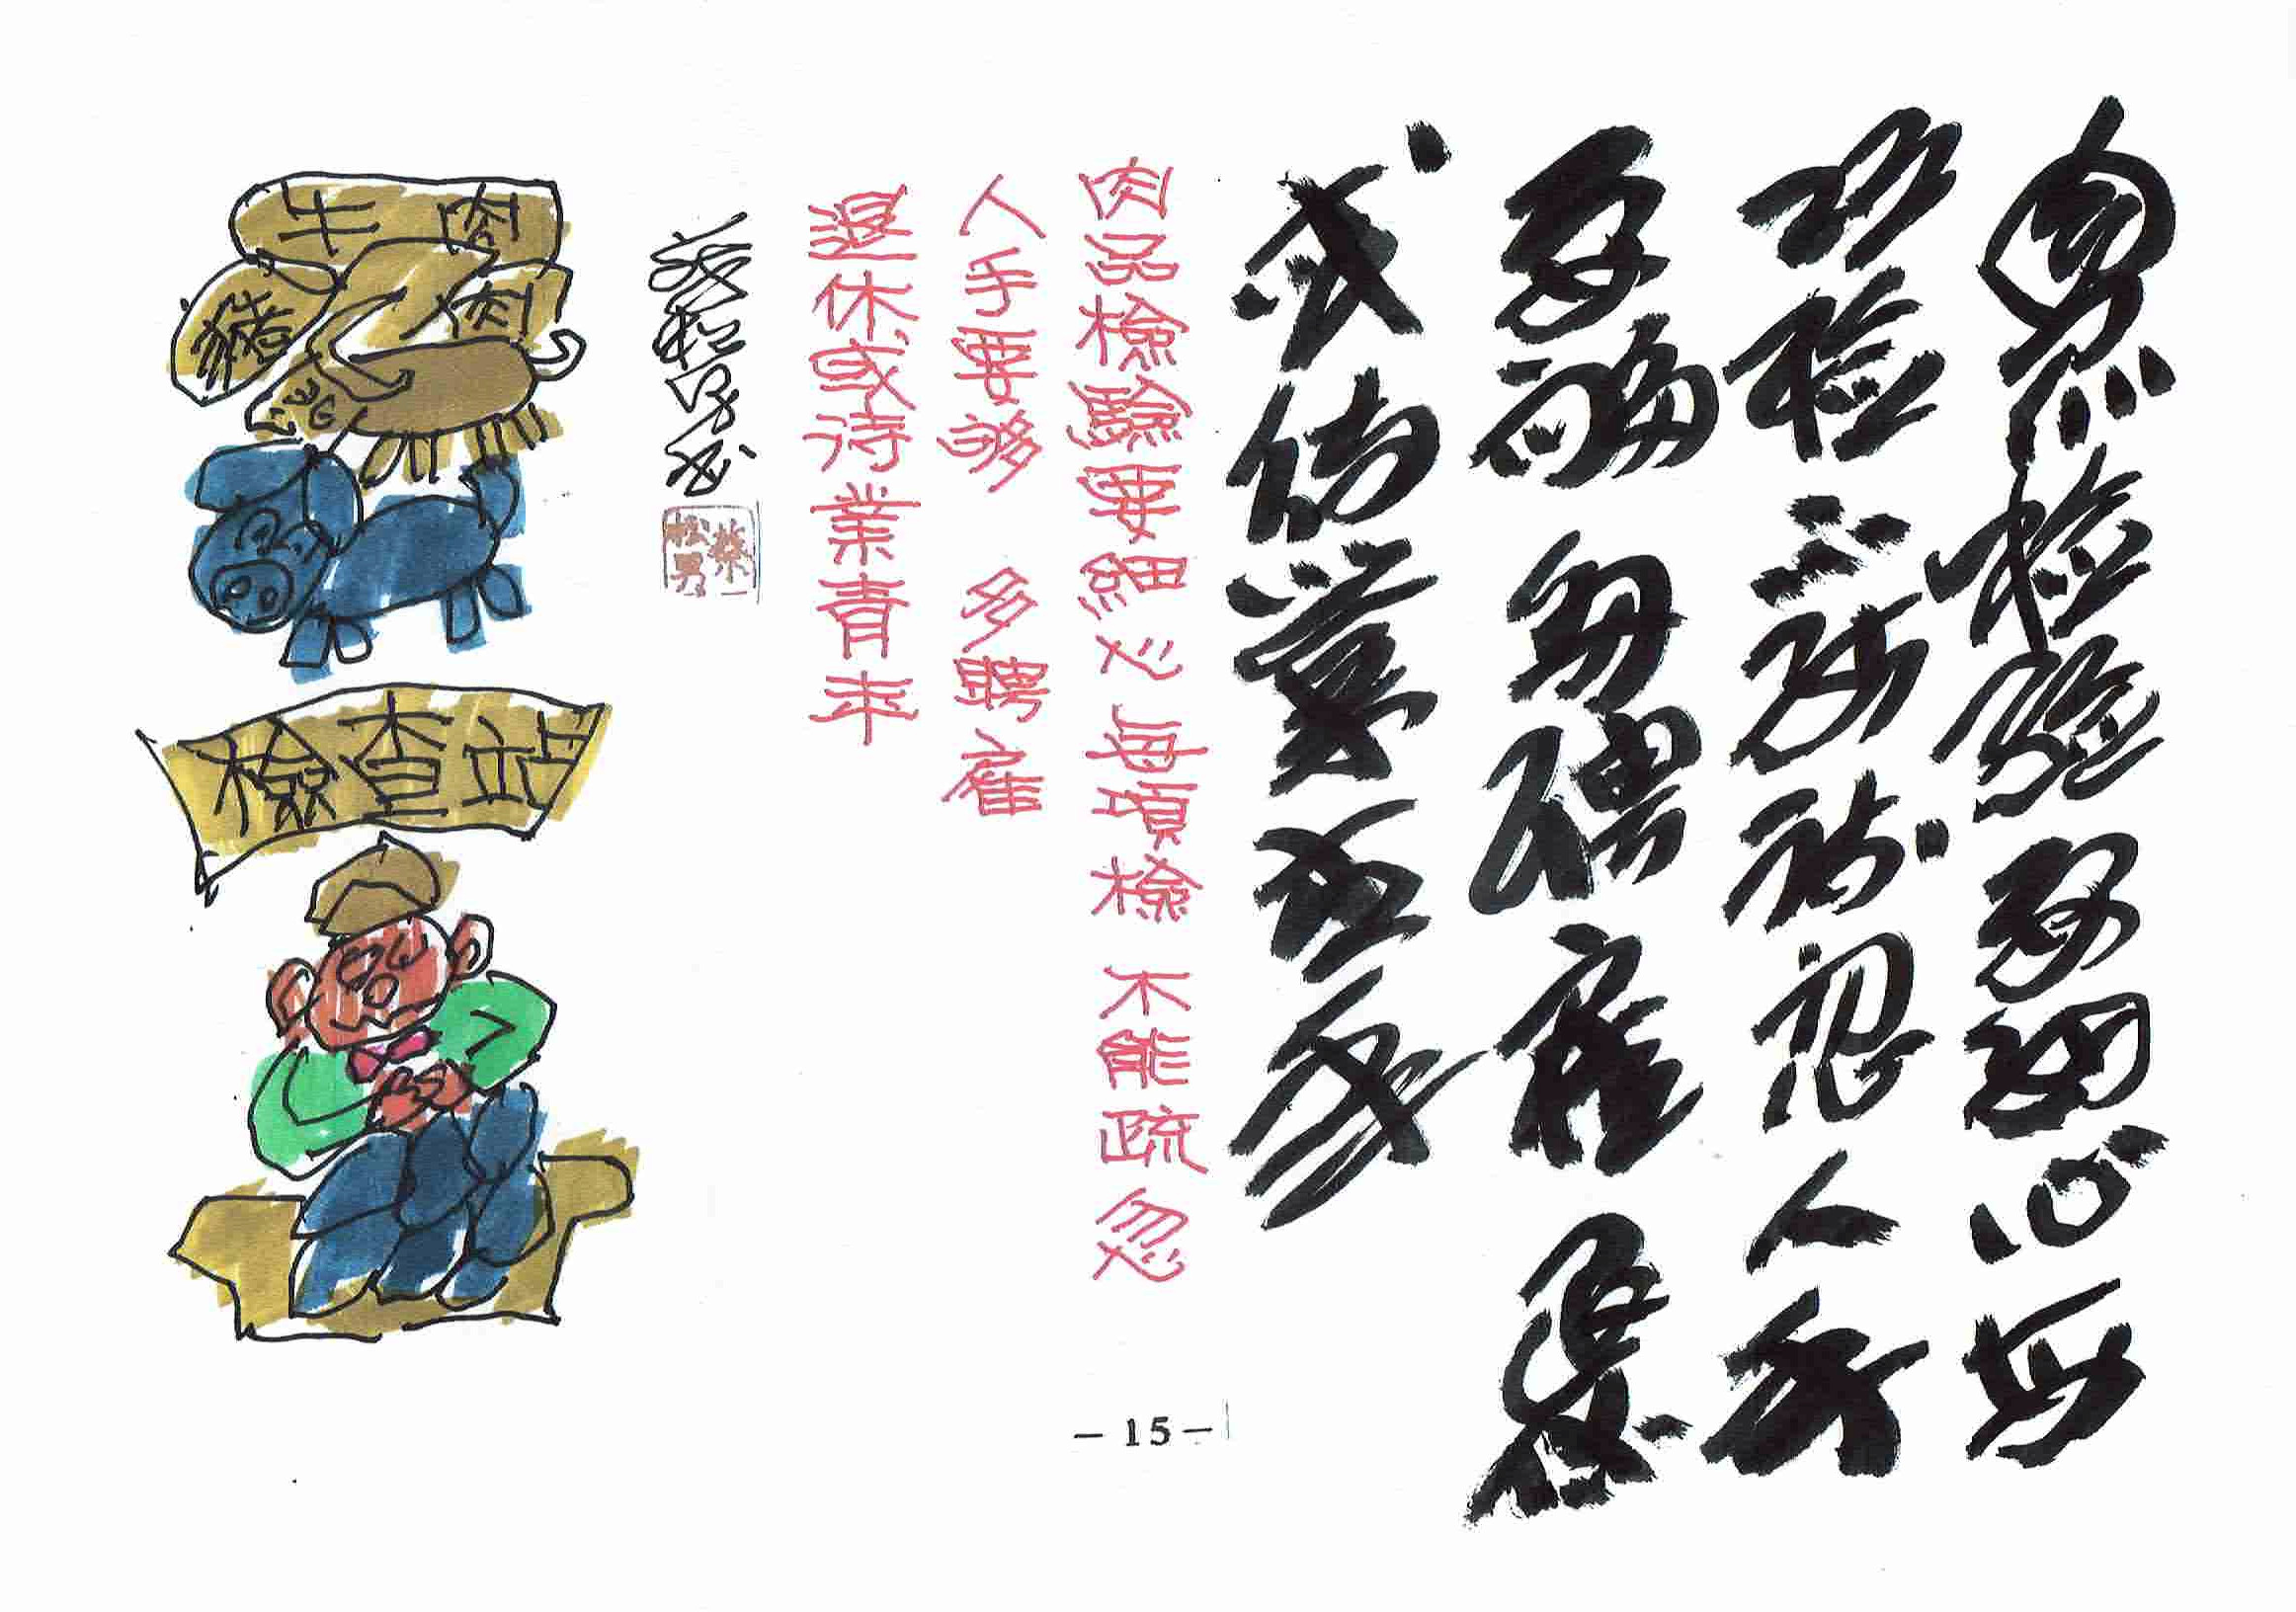 肉品檢驗要細心每
項檢不能疏忽人手
要夠多聘雇退休
或待業青年
肉品檢驗要細心 每項檢 不能疏忽
人手要够 多聘雇
退休或待業青年
蔡松男
蔡松男
牛肉
豬肉
檢查站
－15－